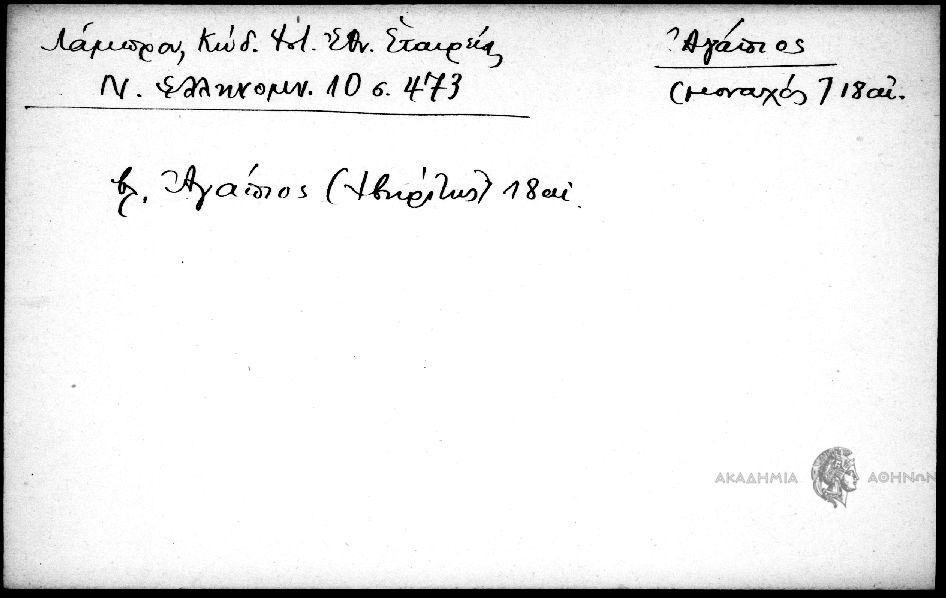 Λάμπρου, Κώδ. Ἱστ. Ἐθν. Ἑταιρείας
Ν. Ἑλληνομν. 10 σ. 473
Ἀγάπιος
(μοναχός) 18 αἰ.
βλ. Ἀγάπιος (Ἰβηρίτης) 18 αἰ.
ΑΚΑΔΗΜΙΑ ΑΘΗΝΩΝ